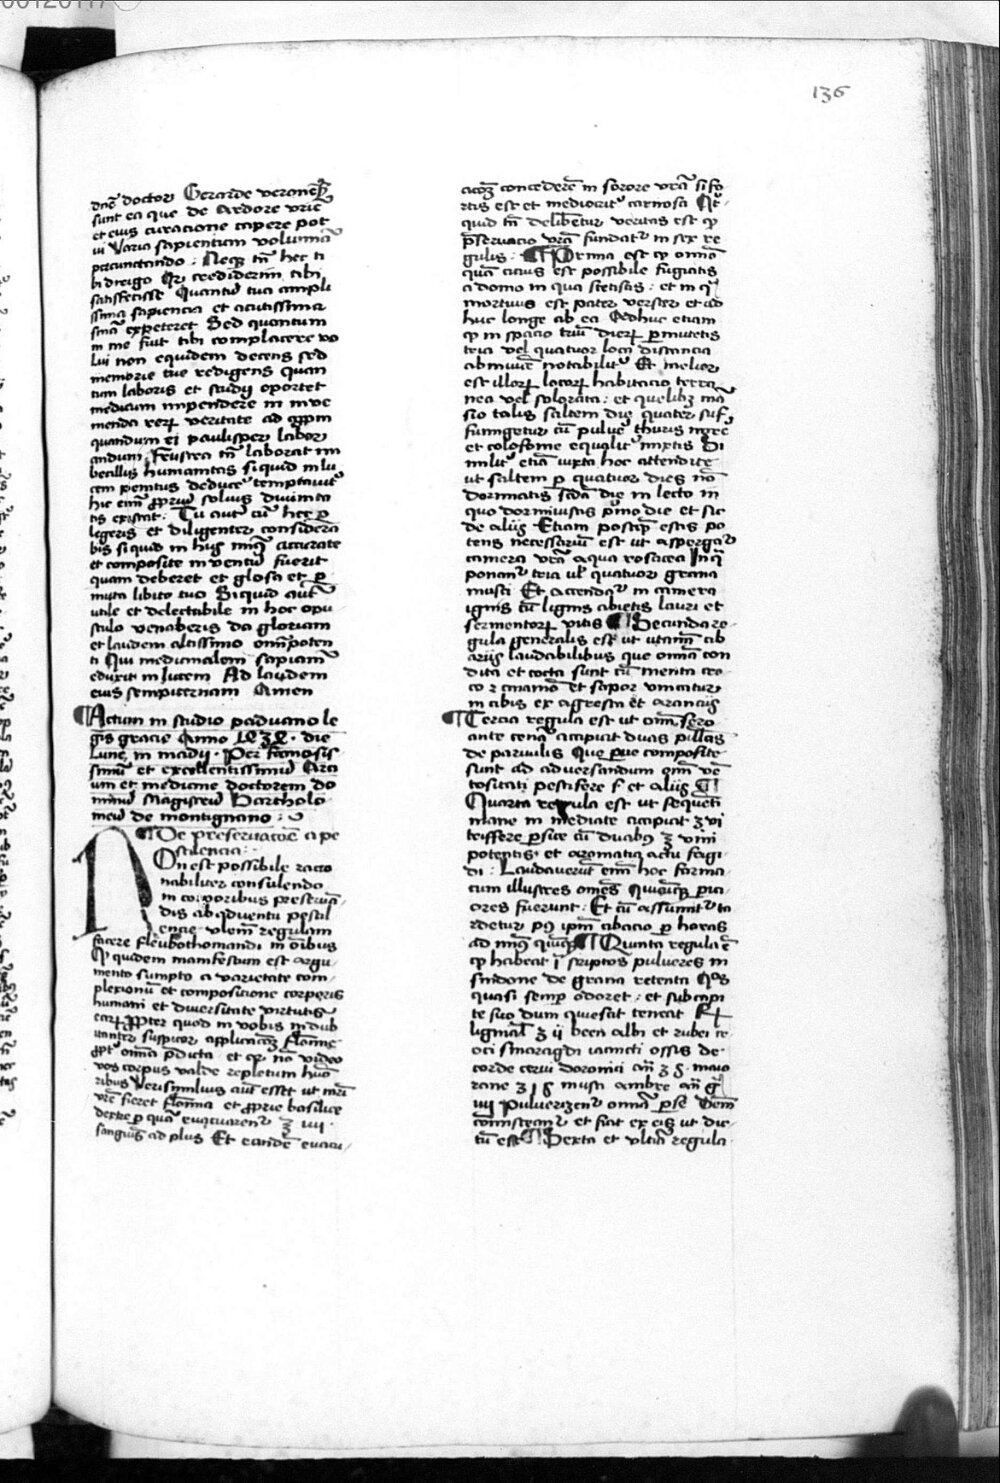 136
dñe doctor Gerarde veronens̄
sunt ea que de Ardore vrīe
et eius curacione capere pot
ui Varia sapientum volumīa
percunctando : Neqꝫ tñ hec ti
bi dirigo qꝛ crediderim tibi
satisfecisse Quantū tua ampli
ssima sapiencia et acutissima
expeteret Sed quantum
in me fuit tibi complacere vo
lui non equidem decens sed
memorie tue redigens quan
tum laboris et studij oportet
medicum impendere in inue
nienda reꝝ veritate ad
quandam ei paulisper labor
andum Frustra tñ laborat im
becillis humanitas si quid in lu
cem penitus deduce temptauit
hic enī ꝓpriū solius diuinita
tis existat : Tu autē cū hec ꝑ
legeris et diligenter considera
bis si quid in hijs minꝰ accurate
et composite inuentū fuerit
quam deberet et glosa et ꝑ
muta libito tuo Si quid autē
utile et delectabile in hoc opu
sculo venaberis da gloriam
et laudem altissimo omīpoten
ti Qui medicinalem sapiam
eduxit in lucem Ad laudem
eius sempiternam Amen
¶ Actum in studio paduano le
gis gracie Anno 1838 die
Lune in madij · Per famosis
simū et excellentissimū Arci
um et medicine doctorem do
minū Magistrū Bartholo
meū de montignano :
¶ De preseruacōne a pe
stilencia :
NOn est possibile racio
nabiliter consulendo
in corporibus preseruā
dis ab aduentu pestil
encie vlem̄ regulam
facere fleubothomandi in oībus
Qꝫ quidem manifestum est argu
mento sumpto a varietate com
plexionū et composicione corporis
humani et diuersitate virtutis
eaꝝ ꝓpter quod in vobis indub
itanter suspicor applicacōꝫ flomīe
ꝓpt̄ omīa pdicta et qꝛ nō video
vos corpus valde repletum humo
ribus Verisimilius autē esset ut
vrē fieret flomīa et ꝓprie basilice
dextre ꝑ quā euacuarent ℥ iiij
sanguis ad plus Et eandē euacu
acōꝫ concederē in sorore vrā si fo
rtis est et mediocrit carnosa
quid tñ deliberetur veritas est ꝙ
preseruacio vrā fundatr in sex re
gulis : ¶ Prima est ꝙ omīa
quā cicius est possibile fugiatis
a domo in qua stetistis : et in q̄
mortuus est pater vester et ad
huc longe ab ea Adhuc etiam
ꝙ in spacio triū dierꝝ ꝑmutetis
tria vel quatuor loca distancia
abinuicē notabilit Et melior
est illorꝝ locorꝝ habitacio terra
nea vel solorata : et quelibꝫ mā
sio talis saltem die quater suf
fumigetur cū puluē thuris
et colofonie equalit mixtis Si
milit etiā iuxta hoc attendite
ut saltem ꝑ quatuor dies nō
dormiatis scda die in lecto in
quo dormiuistis pmo die et sic
de alijs Etiam postꝙ estis po
tens necessariū est ut aspergat
camera vrā aqua rosacea In q̄
ponant tria ul quatuor grana
musti Et accendat in camera
ignis cū lignis abietis lauri et
sermentorꝝ vitis ¶ Secunda re
gula generalis est ut utamī cib
arijs laudabilibus que omīa con
dita et cocta sunt cū menta cro
co ꝛ cinamō et sapor vniatur
in cibis ex agresta et arancijs
¶ Tercia regula est ut omī sero
ante cenā accipiat duas pillas
de paruulis Que pue composite
sunt ad aduersandum omī ve
tositati pestifere et alijs ¶
Quarta regula est ut sequeti
mane in mediate accipiat ʒ vi
teiffere psice cū duabꝰ ℥ vini
potentis et aromatici actu frigi
di : Laudauerūt enī hoc forma
tum illustres omēs Quicūqꝫ pri
ores fuerunt : Et cū assumit ta
rdetur pꝰ ipm̄ a cibacio ꝑ horas
ad minꝰ quinqꝫ ¶ Quinta regula ē
ꝙ habeat ī scriptos pulueres in
sindone de grana retenta Qͦs
quasi semꝑ odoret : et sub capi
te suo dum quiescit teneat Rꝝ
ligni al ʒ ij been albi et rubei ro
oci smaragdi iacincti ossis de
corde cerui doronici an̄ ʒ s. maio
rane ʒ i s musci ambre an̄ g̅
iiij Puluerizent omīa pse
comisceant et fiat ex eis ut dic
tū est ¶ Sexta et vltīa regula